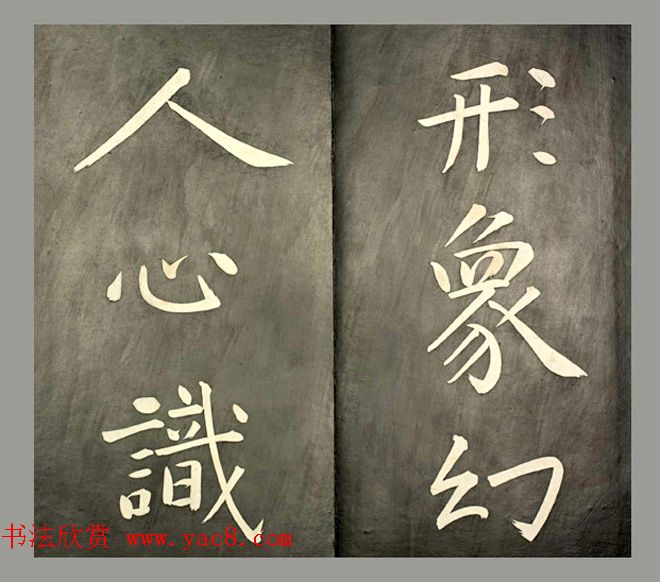 形象幻
人心識
书法欣赏 www.yac8.com